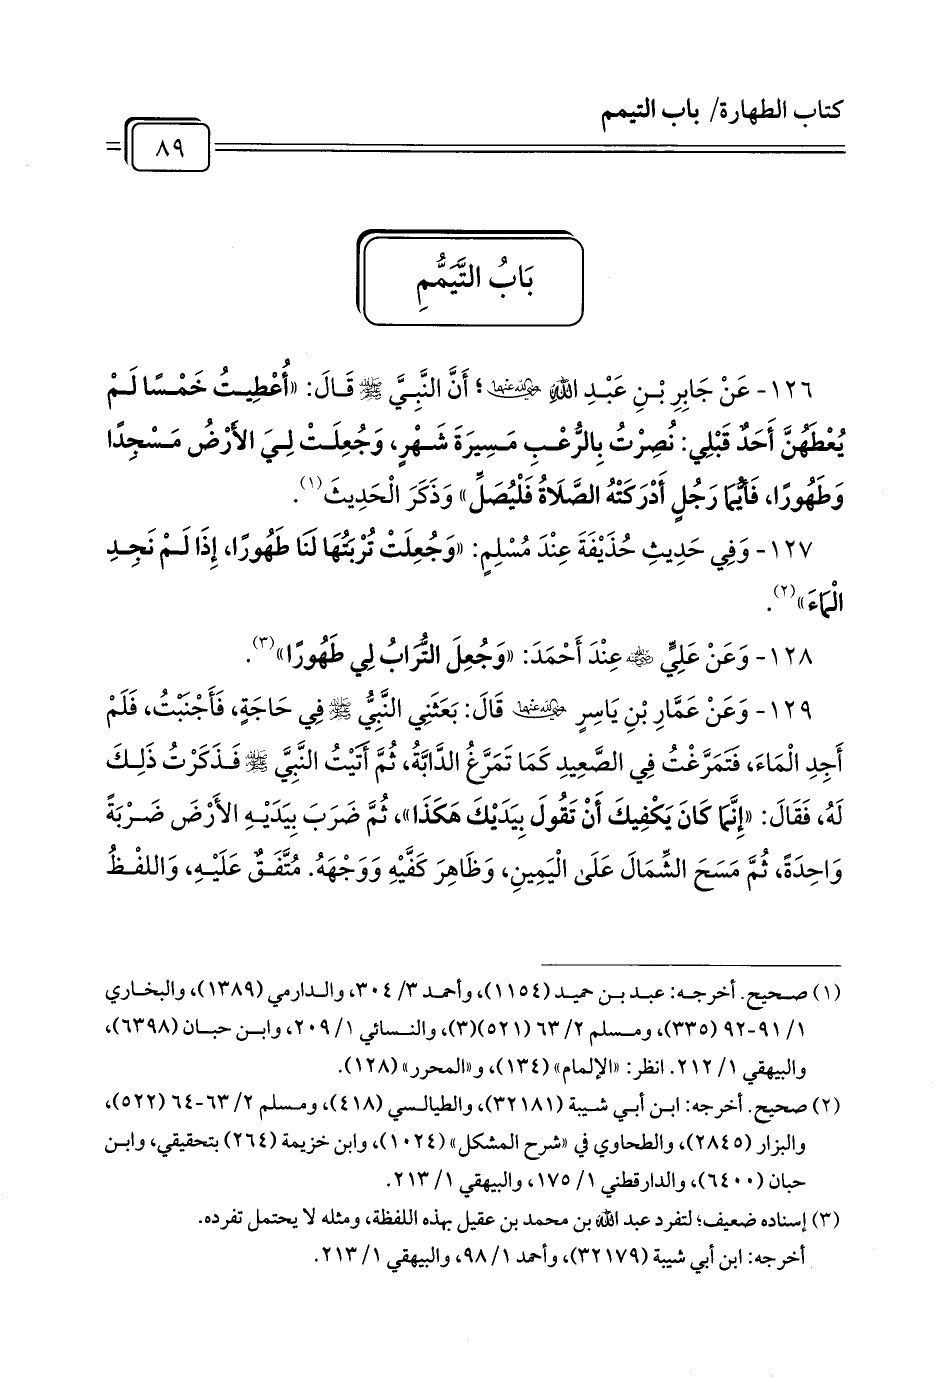 كتاب الطهارة/ باب التيمم
٨٩
بَابُ التَّيَمُّمِ
١٢٦- عَنْ جَابِرِ بْنِ عَبْدِ اللَّهِ رضي الله عنهما؛ أَنَّ النَّبِيَّ ﷺ قَالَ: «أُعْطِيتُ خَمْسًا لَمْ
يُعْطَهُنَّ أَحَدٌ قَبْلِي: نُصِرْتُ بِالرُّعْبِ مَسِيرَةَ شَهْرٍ، وَجُعِلَتْ لِيَ الأَرْضُ مَسْجِدًا
وَطَهُورًا، فَأَيُّمَا رَجُلٍ أَدْرَكَتْهُ الصَّلَاةُ فَلْيُصَلِّ» وَذَكَرَ الْحَدِيثَ (١).
١٢٧- وَفِي حَدِيثِ حُذَيْفَةَ عِنْدَ مُسْلِمٍ: «وَجُعِلَتْ تُرْبَتُهَا لَنَا طَهُورًا، إِذَا لَمْ نَجِدِ
الْمَاءَ» (٢).
١٢٨- وَعَنْ عَلِيٍّ رضي الله عنه عِنْدَ أَحْمَدَ: «وَجُعِلَ التُّرَابُ لِي طَهُورًا» (٣).
١٢٩- وَعَنْ عَمَّارِ بْنِ يَاسِرٍ رضي الله عنهما قَالَ: بَعَثَنِي النَّبِيُّ ﷺ فِي حَاجَةٍ، فَأَجْنَبْتُ، فَلَمْ
أَجِدِ الْمَاءَ، فَتَمَرَّغْتُ فِي الصَّعِيدِ كَمَا تَمَرَّغُ الدَّابَّةُ، ثُمَّ أَتَيْتُ النَّبِيَّ ﷺ فَذَكَرْتُ ذَلِكَ
لَهُ، فَقَالَ: «إِنَّمَا كَانَ يَكْفِيكَ أَنْ تَقُولَ بِيَدَيْكَ هَكَذَا»، ثُمَّ ضَرَبَ بِيَدَيْهِ الأَرْضَ ضَرْبَةً
وَاحِدَةً، ثُمَّ مَسَحَ الشِّمَالَ عَلَى الْيَمِينِ، وَظَاهِرَ كَفَّيْهِ وَوَجْهَهُ. مُتَّفَقٌ عَلَيْهِ، وَاللفْظُ
(١) صحيح. أخرجه: عبد بن حميد (١١٥٤)، وأحمد ٣/ ٣٠٤، والدارمي (١٣٨٩)، والبخاري
١/ ٩١-٩٢ (٣٣٥)، ومسلم ٢/ ٦٣ (٥٢١)(٣)، والنسائي ١/ ٢٠٩، وابن حبان (٦٣٩٨)،
والبيهقي ١/ ٢١٢. انظر: «الإلمام» (١٣٤)، و«المحرر» (١٢٨).
(٢) صحيح. أخرجه: ابن أبي شيبة (٣٢١٨١)، والطيالسي (٤١٨)، ومسلم ٢/ ٦٣-٦٤ (٥٢٢)،
والبزار (٢٨٤٥)، والطحاوي في «شرح المشكل» (١٠٢٤)، وابن خزيمة (٢٦٤) بتحقيقي، وابن
حبان (٦٤٠٠)، والدارقطني ١/ ١٧٥، والبيهقي ١/ ٢١٣.
(٣) إسناده ضعيف؛ لتفرد عبد الله بن محمد بن عقيل بهذه اللفظة، ومثله لا يحتمل تفرده.
أخرجه: ابن أبي شيبة (٣٢١٧٩)، وأحمد ١/ ٩٨، والبيهقي ١/ ٢١٣.